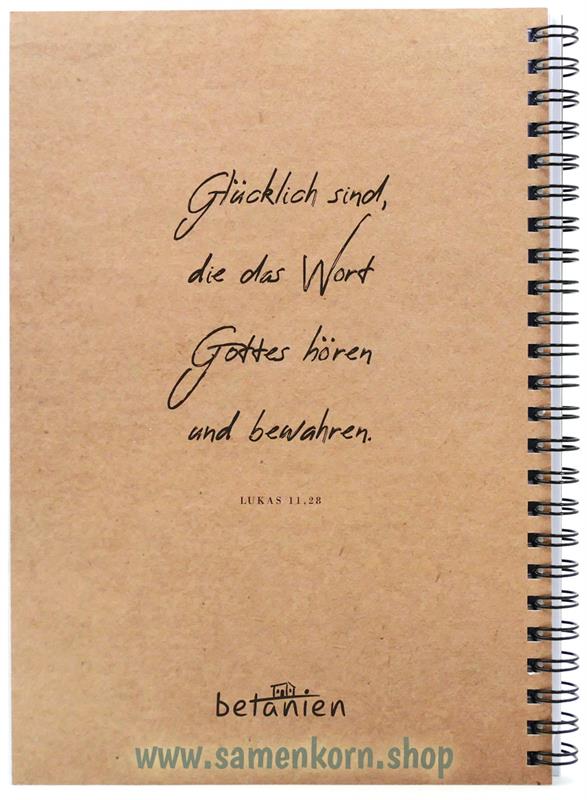 Glücklich sind,
die das Wort
Gottes hören
und bewahren.
LUKAS 11,28
betanien
www.samenkorn.shop